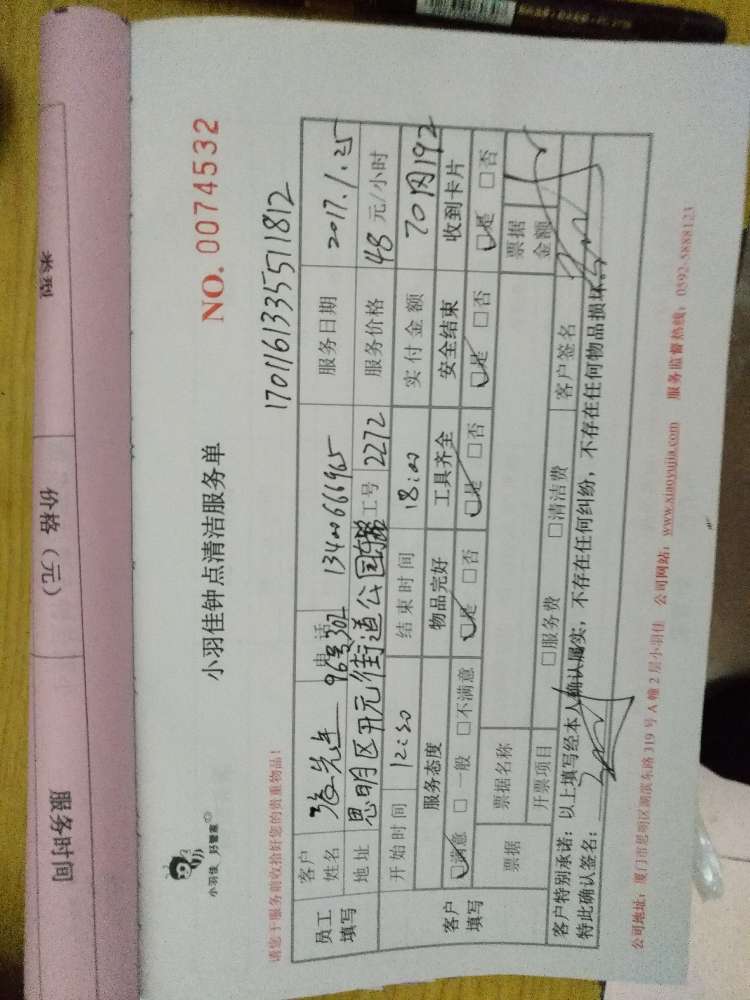 类型
价格（元）
服务时间
小羽佳 好管家
小羽佳钟点清洁服务单
NO. 0074532
请您于服务前收拾好您的贵重物品！
1701161335511812
员工填写
客户姓名 张先生 电话 13400666965 服务日期 2017.1.25
96号302
地址 思明区开元街道公园东路 工号 2272 服务价格 48 元/小时
开始时间 12:30 结束时间 18:00 实付金额 70内192
客户填写
服务态度 物品完好 工具齐全 安全结束 收到卡片
□满意 □一般 □不满意 □是 □否 □是 □否 □是 □否 □是 □否
票据 票据名称 票据金额
开票项目 □服务费 □清洁费 客户签名
客户特别承诺：以上填写经本人确认属实，不存在任何纠纷，不存在任何物品损坏。
特此确认签名：
公司地址：厦门市思明区湖滨东路319号A幢2层小羽佳 公司网站：www.xiaoyujia.com 服务监督热线：0592-5888123